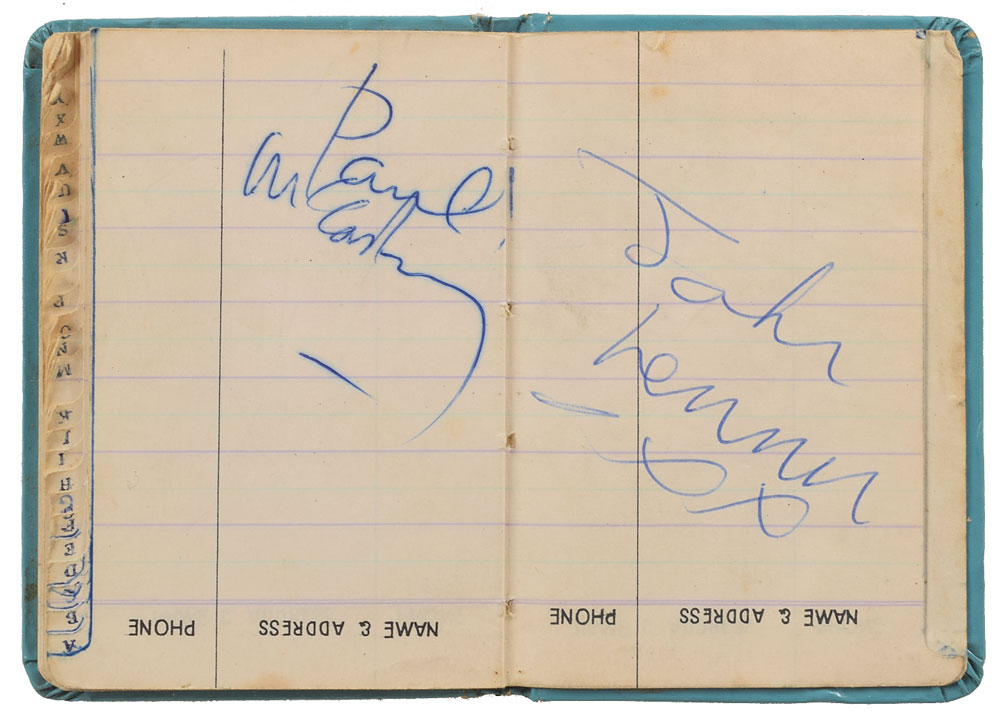 Paul
McCartney
John
Lennon
PHONE
NAME & ADDRESS
PHONE
NAME & ADDRESS